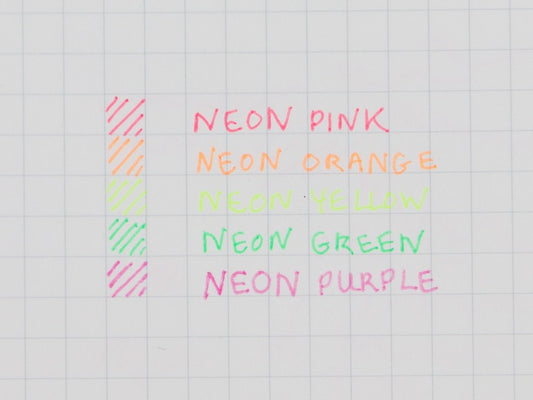 NEON PINK
NEON ORANGE
NEON YELLOW
NEON GREEN
NEON PURPLE